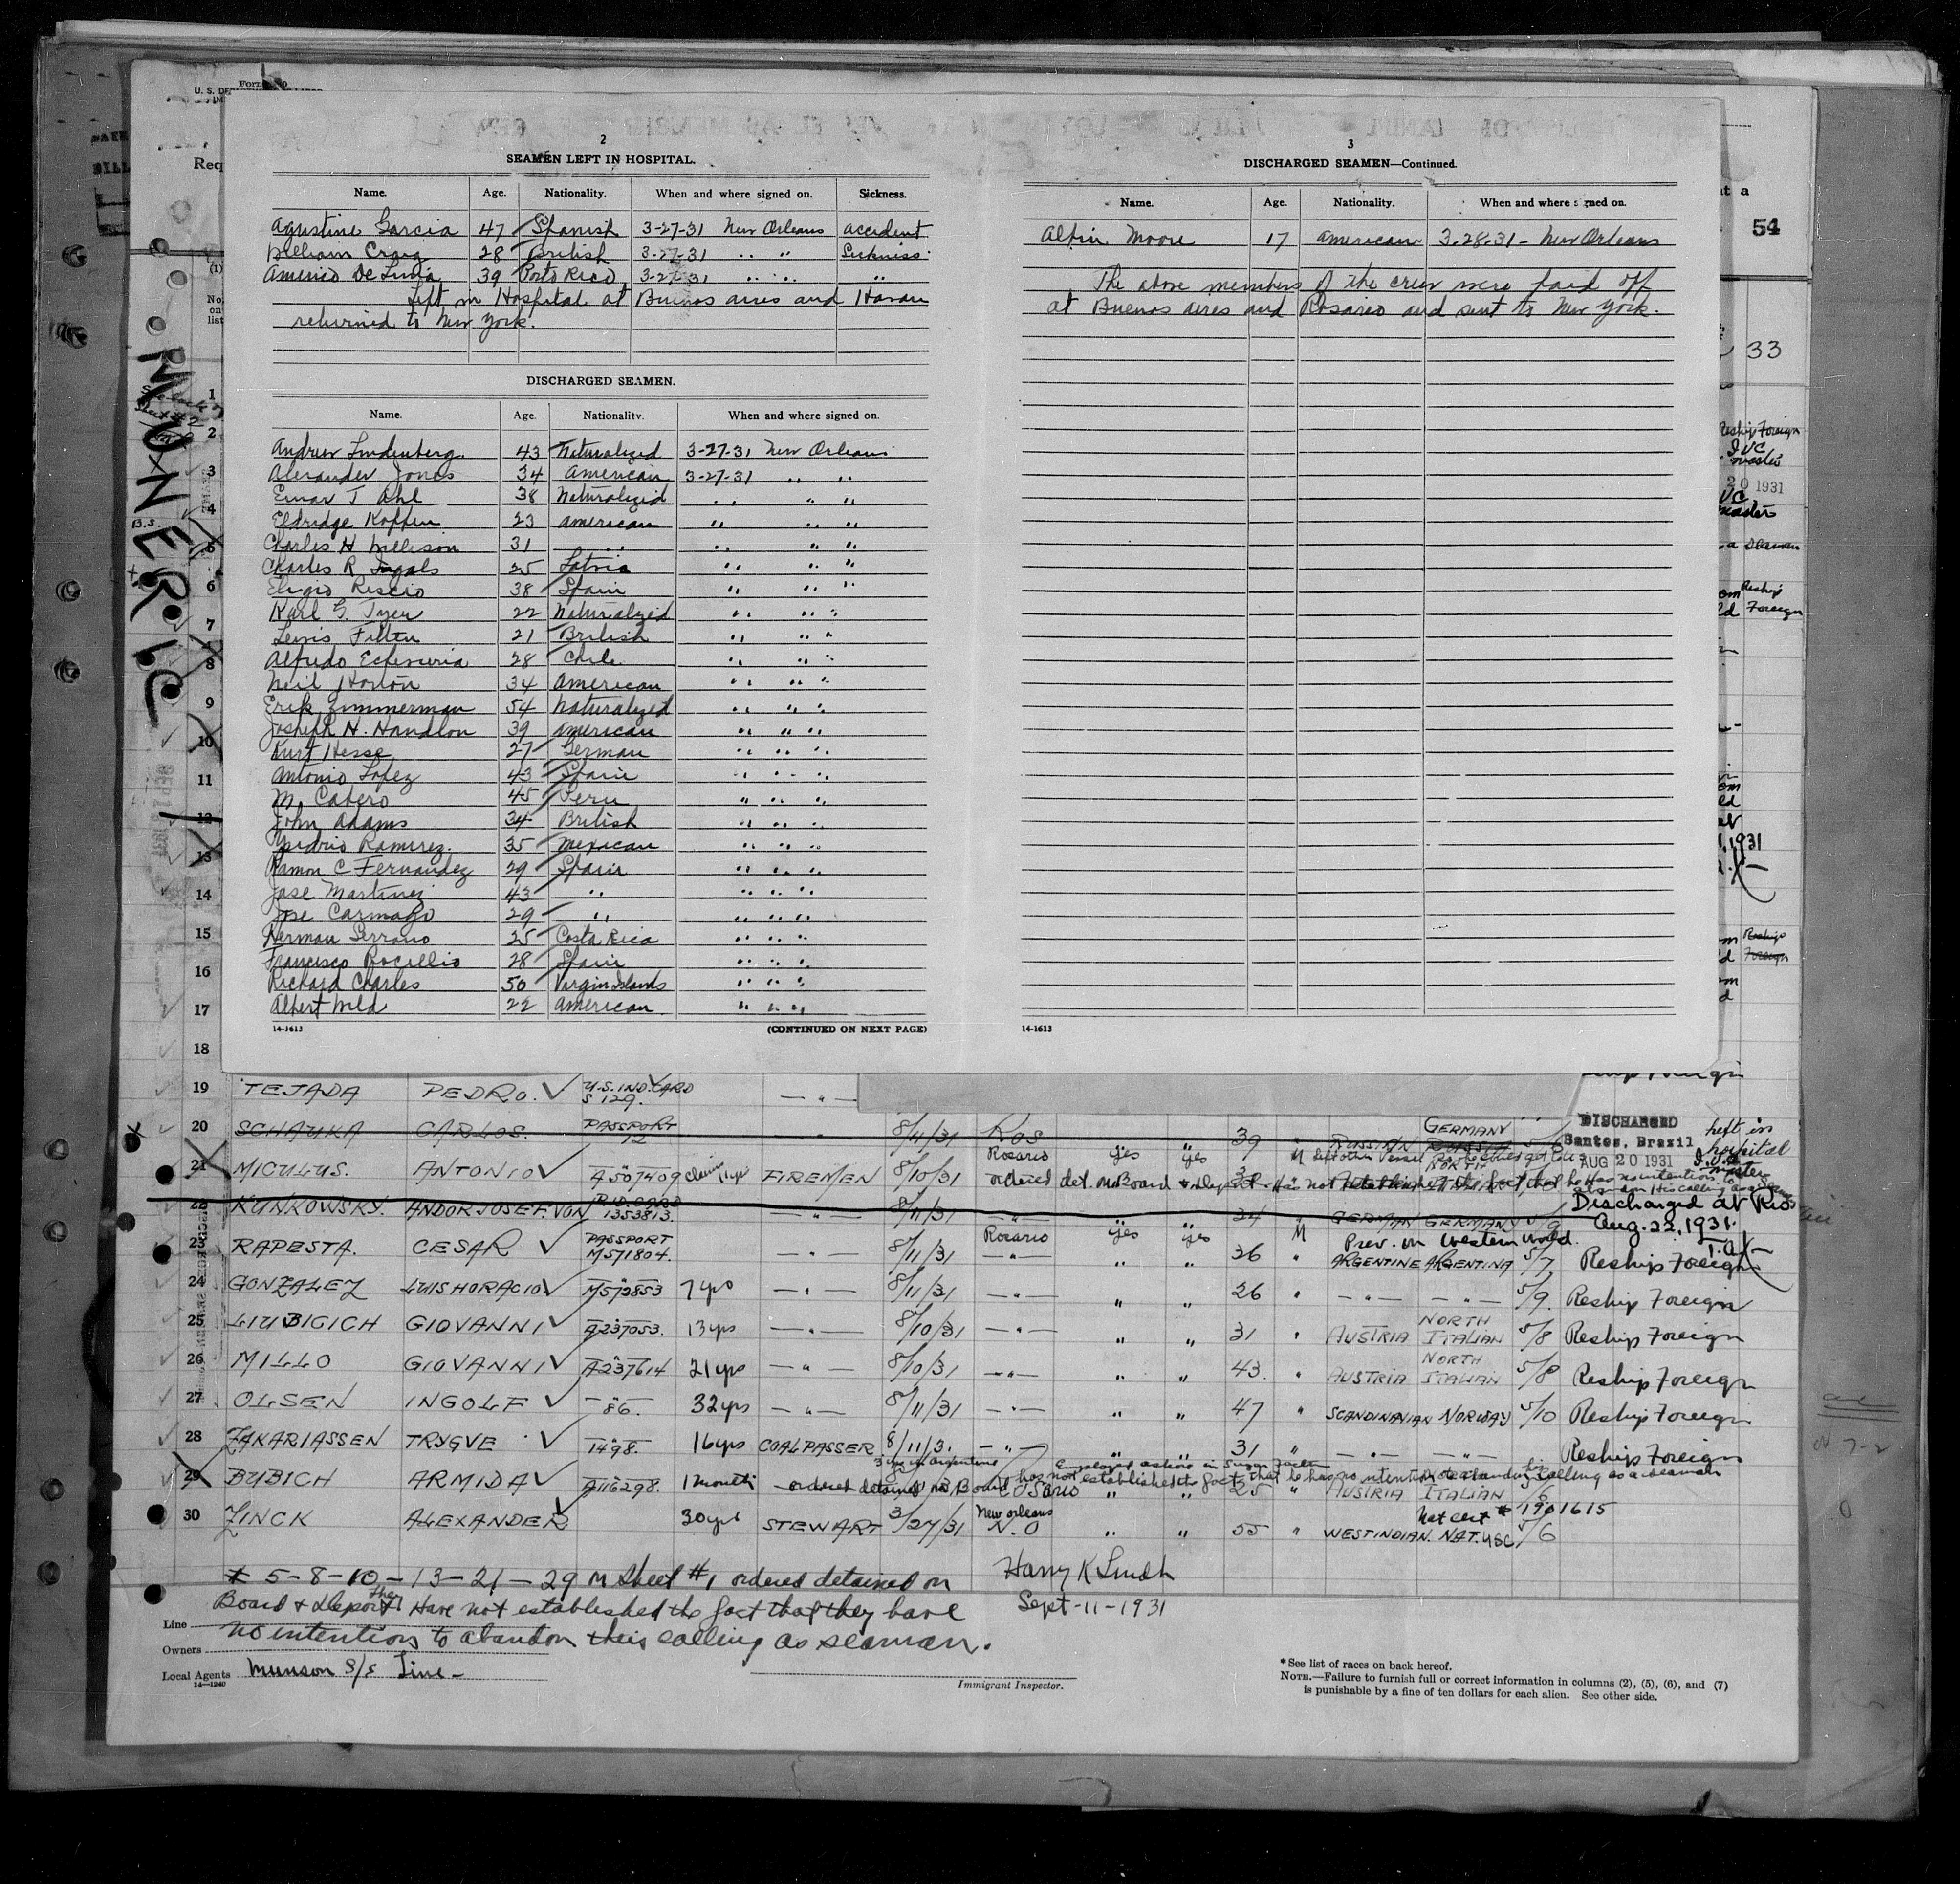 Form
U. S. DE
Req
(1)
No.
on
list
MUNERIC
2
SEAMEN LEFT IN HOSPITAL.
Name. Age. Nationality. When and where signed on. Sickness.
Agustine Garcia 47 Spanish 3-27-31 New Orleans accident
William Craig 28 British 3-27-31 " " Sickness
Americo De Luna 39 Porto Rico 3-27-31 " " "
Left in Hospital at Buenos aires and
returned to New York.
DISCHARGED SEAMEN.
Name. Age. Nationality. When and where signed on.
Andrew Lindenberg 43 Naturalized 3-27-31 New Orleans
Alexander Jones 34 American 3-27-31 " "
Einar T Ahl 38 Naturalized " " "
Eldridge Koppen 23 american " " "
Charles H Willison 31 " " " "
Charles R Ingals 25 Latvia " " "
Eligio Riscio 38 Spain " " "
Karl G. 22 Naturalized " " "
Lewis 21 British " " "
Alfredo Echeverria 28 Chile " " "
Neil Horton 34 American " " "
Erik Zimmerman 54 Naturalized " " "
Joshephh H. Handlon 39 american " " "
Kurt Hesse 27 German " " "
Antonio Lopez 43 Spain " " "
M. Cabero 45 Peru " " "
John Adams 34 British " " "
Ramirez. 35 Mexican " " "
Ramon C Fernandez 29 Spain " " "
Jose Martinez 43 " " " "
Jose Carmago 29 " " " "
Herman Serrano 25 Costa Rica " " "
Francisco Rocillio 28 Spain " " "
Richard Charles 50 Virgin Islands " " "
Albert Wild 22 American " " "
14-1613 (CONTINUED ON NEXT PAGE)
3
DISCHARGED SEAMEN—Continued.
Name. Age. Nationality. When and where signed on.
Moore 17 american 3-28-31 - New Orleans
The above members of the crew were paid off
at Buenos aires and Rosario and sent to New York.
14-1613
t a
54
33
Reship Foreign
20 1931
Reship
Foreign
1931
Reship
Foreign
1
2
3
4
5
6
7
8
9
10
11
12
13
14
15
16
17
18
19 TEJADA PEDRO. U.S. IND. CARD S 129. — " —
20 SCHAUKA CARLOS. PASSPORT 12 " 8/11/31 ROS Rosario yes yes 39 " M RUSSIAN RUSSIA GERMANY DISCHARGED Santos, Brazil AUG 20 1931 Left in hospital
21 MICULUS. ANTONIO A507409 FIREMEN 8/10/31 ordered det. on Board & Deport. Has not established the fact that he has no intention to
22 KUNKOWSKY. ANDOR JOSEF. VON 1353813. — " — 8/11/31 — " — Rosario yes yes 34 M GERMAN GERMANY 5/9 Discharged at Rio Aug. 22, 1931.
Prev. on Western World.
23 RAPESTA. CESAR PASSPORT M571804. — " — 8/11/31 — " — " " 26 " ARGENTINE ARGENTINA 5/7 Reship Foreign
24 GONZALEZ LUIS HORACIO M573853 7 yrs — " — 8/11/31 — " — " " 26 " — " — — " — 5/9. Reship Foreign
25 LIUBICICH GIOVANNI A237053. 13 yrs — " — 8/10/31 — " — " " 31 " AUSTRIA NORTH ITALIAN 5/8 Reship Foreign
26 MILLO GIOVANNI A237614 21 yrs — " — 8/10/31 — " — " " 43. " AUSTRIA NORTH ITALIAN 5/8 Reship Foreign
27 OLSEN INGOLF 86. 32 yrs — " — 8/11/31 — " — " " 47 " SCANDINAVIAN NORWAY 5/10 Reship Foreign
28 ZAKARIASSEN TRYGVE 1498. 16 yrs COALPASSER 8/11/31 — " — " " 31 " — " — — " — Reship Foreign
29 BUBICH ARMIDA A116298. 1 month ordered detained on Board has not established the fact that he has no intention to abandon his calling as a seaman
" " 25 " AUSTRIA ITALIAN 5/6
30 ZINCK ALEXANDER 30 yrs STEWART 3/27/31 New Orleans N.O " " 55 " WEST INDIAN. NAT. USC 5/6 Nat cert # 1901615
* 5-8-10-13-21-29 on Sheet #1 ordered detained on
Board & Deport They Have not established the fact that they have
no intention to abandon their calling as seaman.
Harry K Lindh
Sept-11-1931
Line
Owners
Local Agents Munson S/S Line -
14—1240
Immigrant Inspector.
* See list of races on back hereof.
NOTE.—Failure to furnish full or correct information in columns (2), (5), (6), and (7)
is punishable by a fine of ten dollars for each alien. See other side.